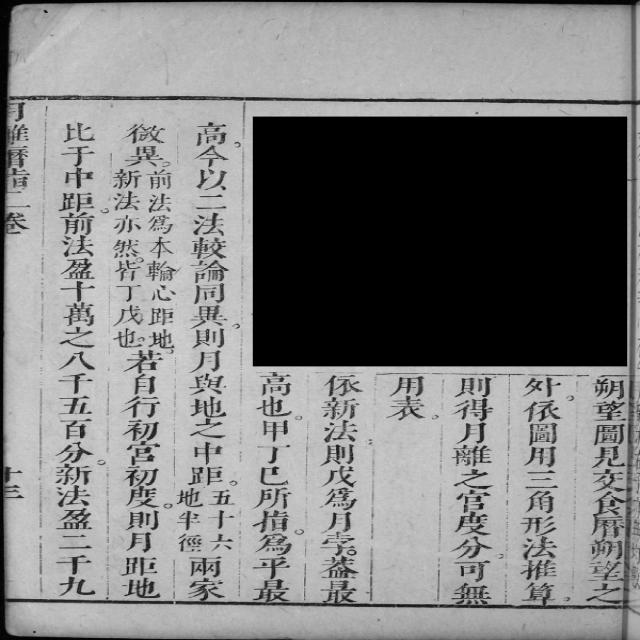 朔望圖見交食曆朔望之
外依圖用三角形法推算
則得月離之宫度分可無
用表
依新法則戊爲月孛葢最
高也甲丁巳所指爲平最
高今以二法較論同異則月與地之中距五十六地半徑兩家
微異前法爲本輪心距地新法亦然皆丁戊也若自行初宫初度則月距地
比于中距前法盈十萬之八千五百分新法盈二千九
月離曆指二卷
十三